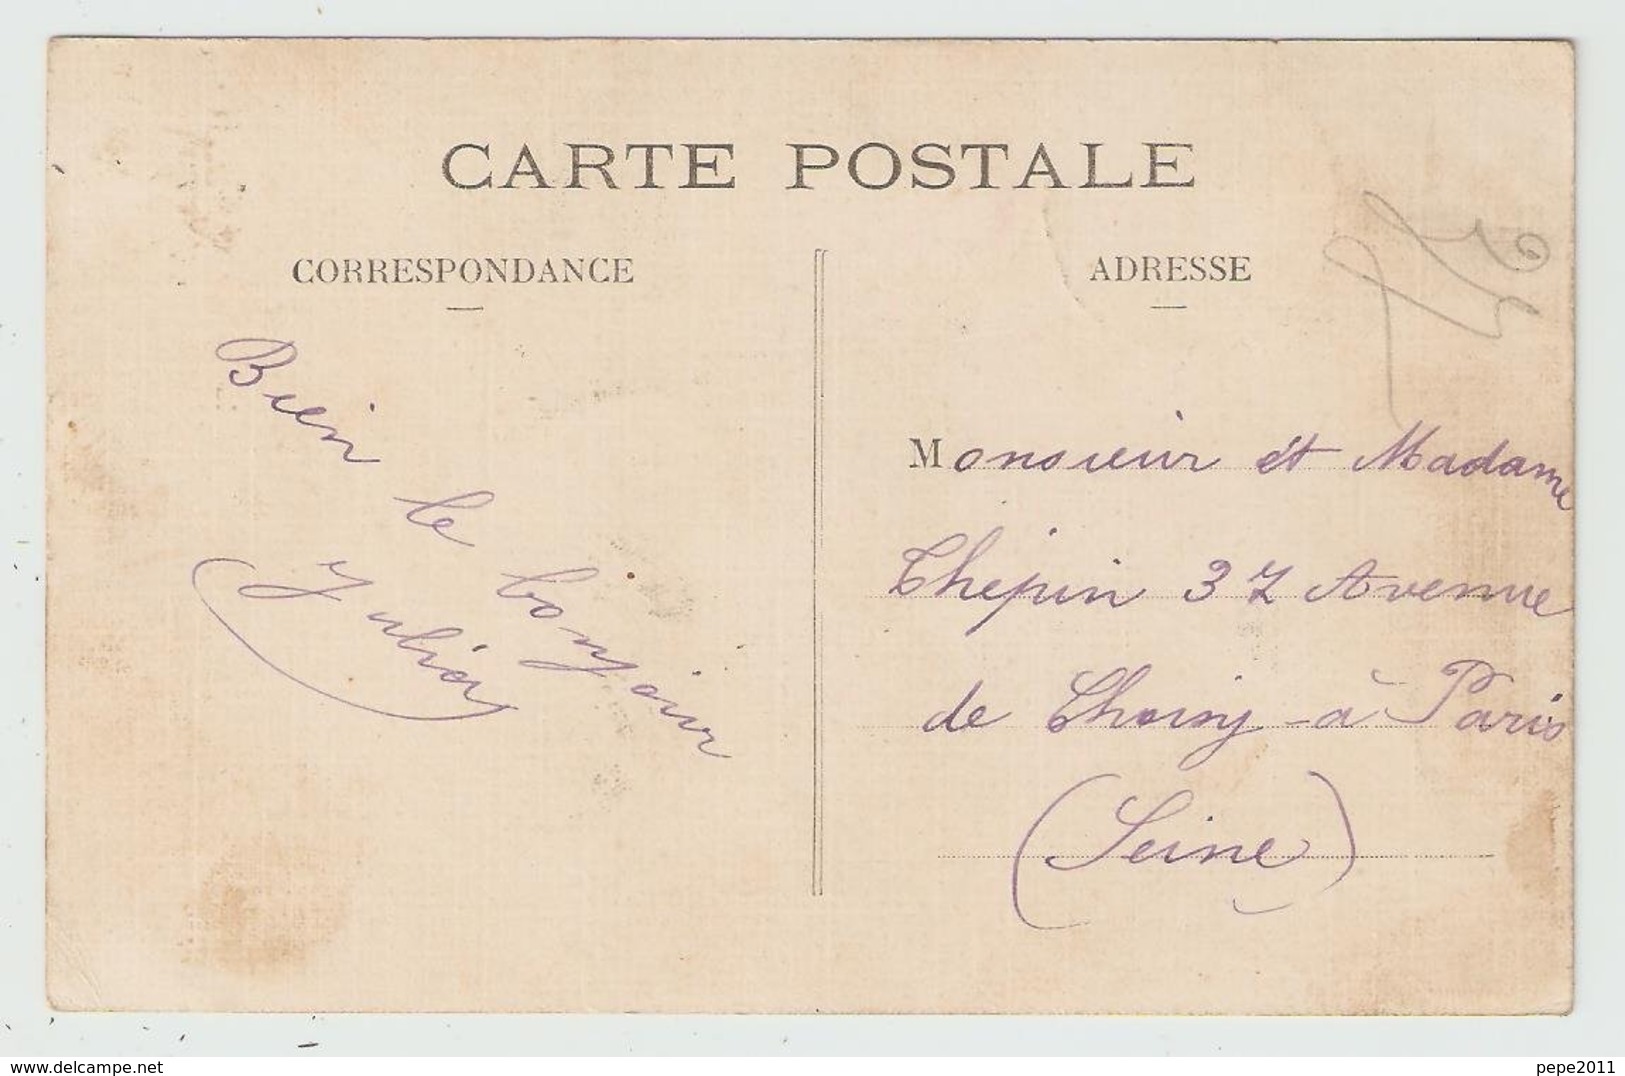 CARTE POSTALE
CORRESPONDANCE
ADRESSE
Bien le bonjour
Monsieur et Madame
Thépin 37 Avenue
de Choisy - à Paris
(Seine)
delcampe.net
pepe2011